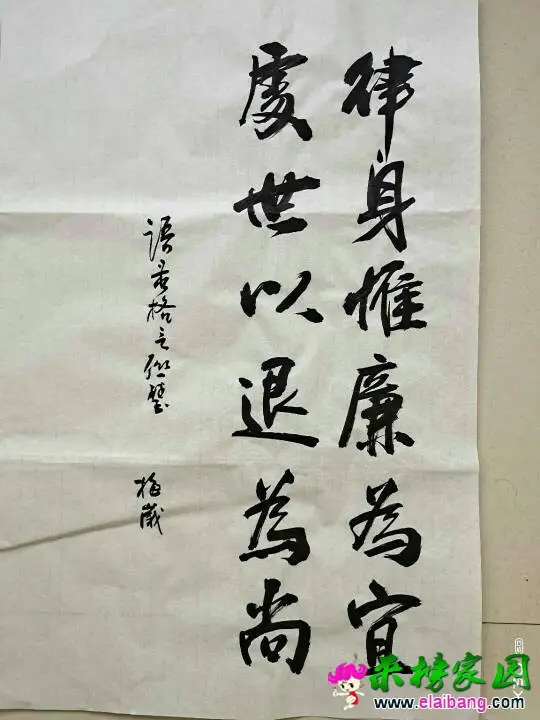 律身惟廉為宜
處世以退為尚
語出格言聯璧
梅歲
来榜家园
www.elaibang.com